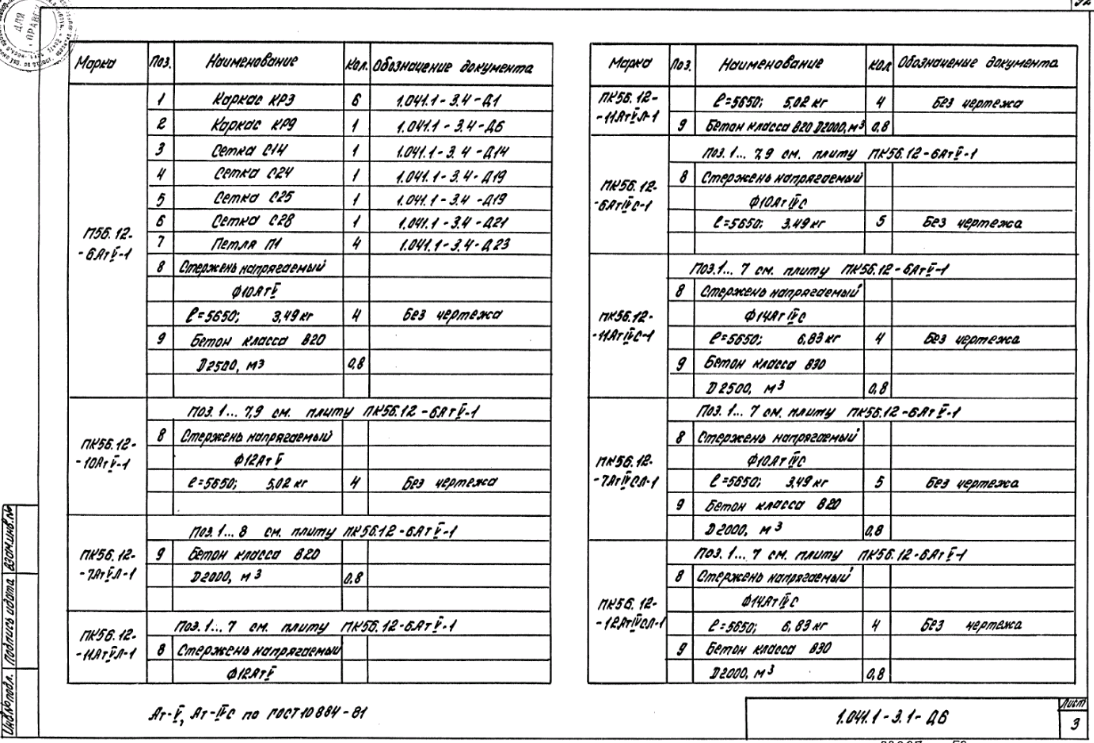 Марка Поз. Наименование Кол. Обозначение документа
П56.12-6АтV-1
1 Каркас КР3 6 1.041.1-3.4-Д1
2 Каркас КР9 1 1.041.1-3.4-Д6
3 Сетка С14 1 1.041.1-3.4-Д14
4 Сетка С24 1 1.041.1-3.4-Д19
5 Сетка С25 1 1.041.1-3.4-Д19
6 Сетка С28 1 1.041.1-3.4-Д21
7 Петля П1 4 1.041.1-3.4-Д23
8 Стержень напрягаемый
Ф10АтV
ℓ=5650; 3,49 кг 4 Без чертежа
9 Бетон класса В20
D2500, м3 0,8
ПК56.12-
-10АтV-1
Поз. 1... 7,9 см. плиту ПК56.12-6АтV-1
8 Стержень напрягаемый
Ф12Ат V
ℓ=5650; 5,02 кг 4 Без чертежа
ПК56.12-
-7АтVЛ-1
Поз. 1... 8 см. плиту ПК56.12-6АтV-1
9 Бетон класса В20
D2000, м3 0,8
ПК56.12-
-11АтVЛ-1
Поз. 1... 7 см. плиту ПК56.12-6АтV-1
8 Стержень напрягаемый
Ф12АтV
Марка Поз. Наименование Кол Обозначение документа
ПК56.12-
-11АтVЛ-1
ℓ=5650; 5,02 кг 4 Без чертежа
9 Бетон класса В20 D2000, м3 0,8
ПК56.12-
-6АтIVС-1
Поз. 1... 7,9 см. плиту ПК56.12-6АтV-1
8 Стержень напрягаемый
Ф10Ат IVС
ℓ=5650; 3.49 кг 5 Без чертежа
ПК56.12-
-11АтIVС-1
Поз. 1... 7 см. плиту ПК56.12-6АтV-1
8 Стержень напрягаемый
Ф14Ат IVС
ℓ=5650; 6,83 кг 4 Без чертежа
9 Бетон класса В30
D2500, м3 0,8
ПК56.12-
-7АтIVСЛ-1
Поз. 1... 7 см. плиту ПК56.12-6АтV-1
8 Стержень напрягаемый
Ф10Ат IVС
ℓ=5650; 3,49 кг 5 Без чертежа
9 Бетон класса В20
D2000, м3 0,8
ПК56.12-
-12АтIVСЛ-1
Поз. 1... 7 см. плиту ПК56.12-6АтV-1
8 Стержень напрягаемый
Ф14Ат IVС
ℓ=5650; 6,83 кг 4 Без чертежа
9 Бетон класса В30
D2000, м3 0,8
Ат-V, Ат-IVС по ГОСТ 10884-81
1.041.1-3.1-Д6
Лист
3
Инв.№подл. Подпись и дата Взам.инв.№